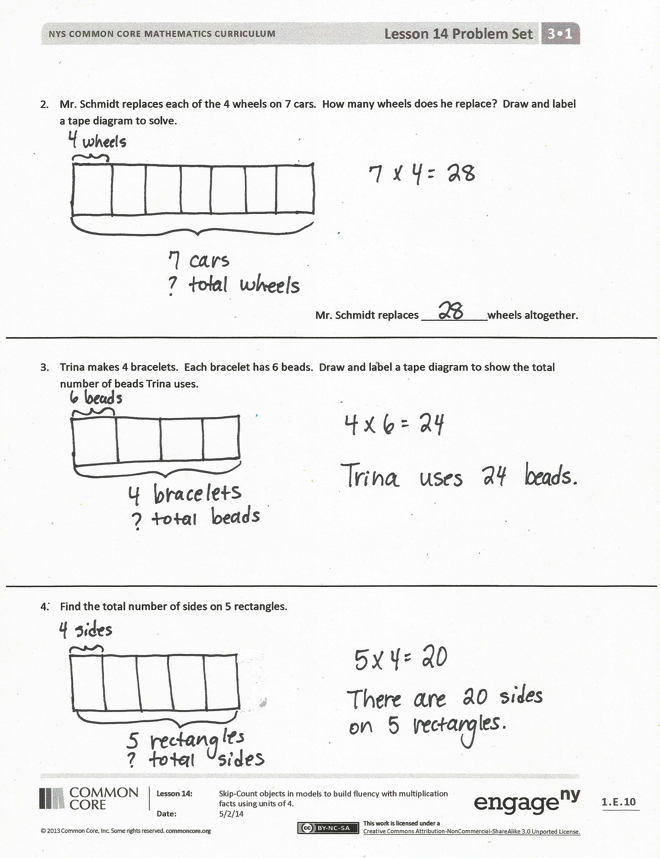 NYS COMMON CORE MATHEMATICS CURRICULUM
Lesson 14 Problem Set
3•1
2. Mr. Schmidt replaces each of the 4 wheels on 7 cars. How many wheels does he replace? Draw and label
a tape diagram to solve.
4 wheels
7 x 4 = 28
7 cars
? total wheels
Mr. Schmidt replaces 28 wheels altogether.
3. Trina makes 4 bracelets. Each bracelet has 6 beads. Draw and label a tape diagram to show the total
number of beads Trina uses.
6 beads
4 x 6 = 24
Trina uses 24 beads.
4 bracelets
? total beads
4. Find the total number of sides on 5 rectangles.
4 sides
5 x 4 = 20
There are 20 sides
on 5 rectangles.
5 rectangles
? total sides
COMMON
CORE
Lesson 14:
Skip-Count objects in models to build fluency with multiplication
facts using units of 4.
Date:
5/2/14
engage ny
1.E.10
© 2013 Common Core, Inc. Some rights reserved. commoncore.org
cc BY-NC-SA
This work is licensed under a
Creative Commons Attribution-NonCommercial-ShareAlike 3.0 Unported License.